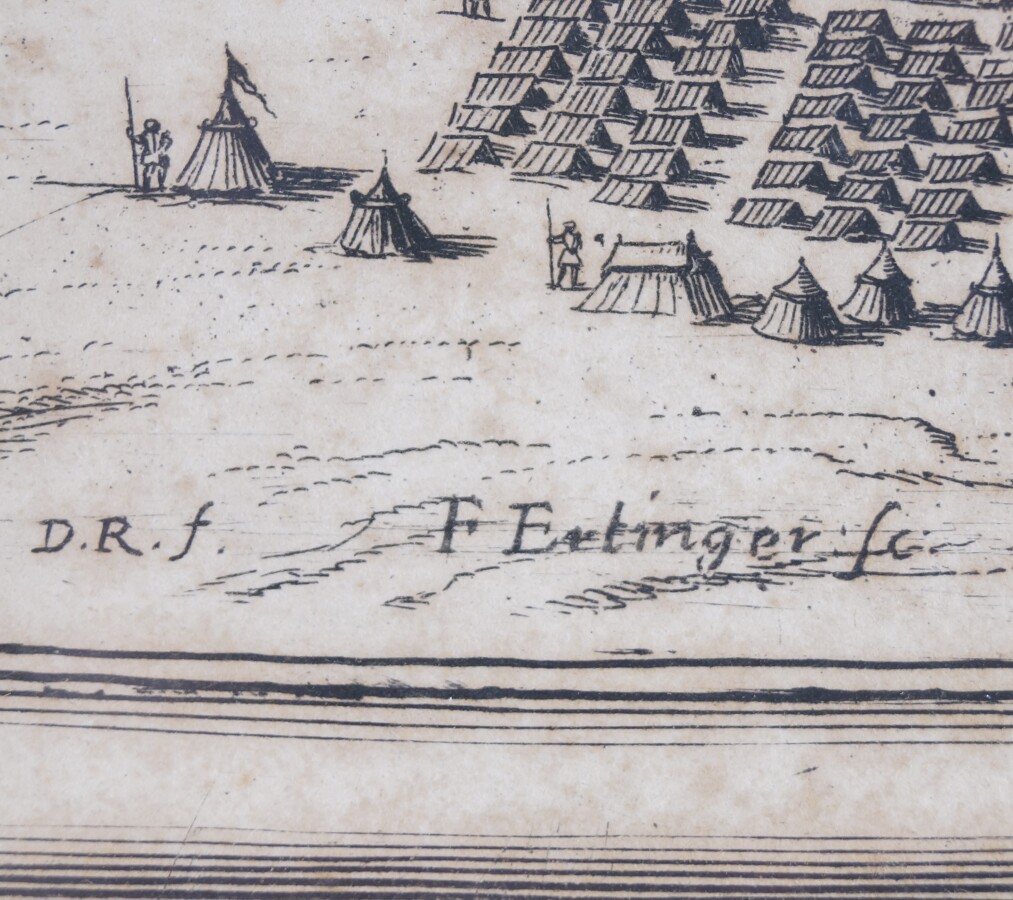 D.R.f. F Ertinger ſc.